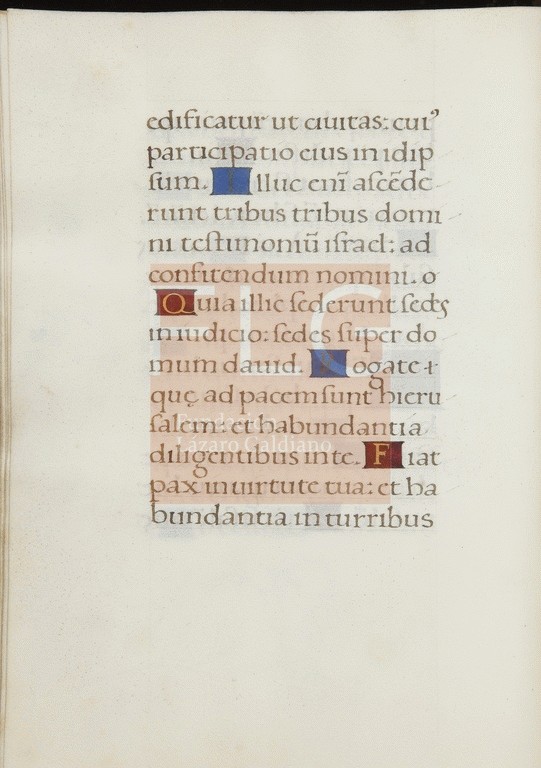 edificatur ut ciuitas: cuiꝰ
participatio eius in idip
ſum. Illuc eni̅ aſce̅de
runt tribus tribus domi
ni teſtimoniu̅ iſrael: ad
confitendum nomini. o
Quia illic ſederunt ſedes
in iudicio: ſedes ſuper do
mum dauid. Rogate
quę ad pacem ſunt hieru
ſalem: et habundantia
diligentibus in te. Fiat
pax in uirtute tua: et ha
bundantia in turribus
FLG
Fundación
Lázaro Galdiano